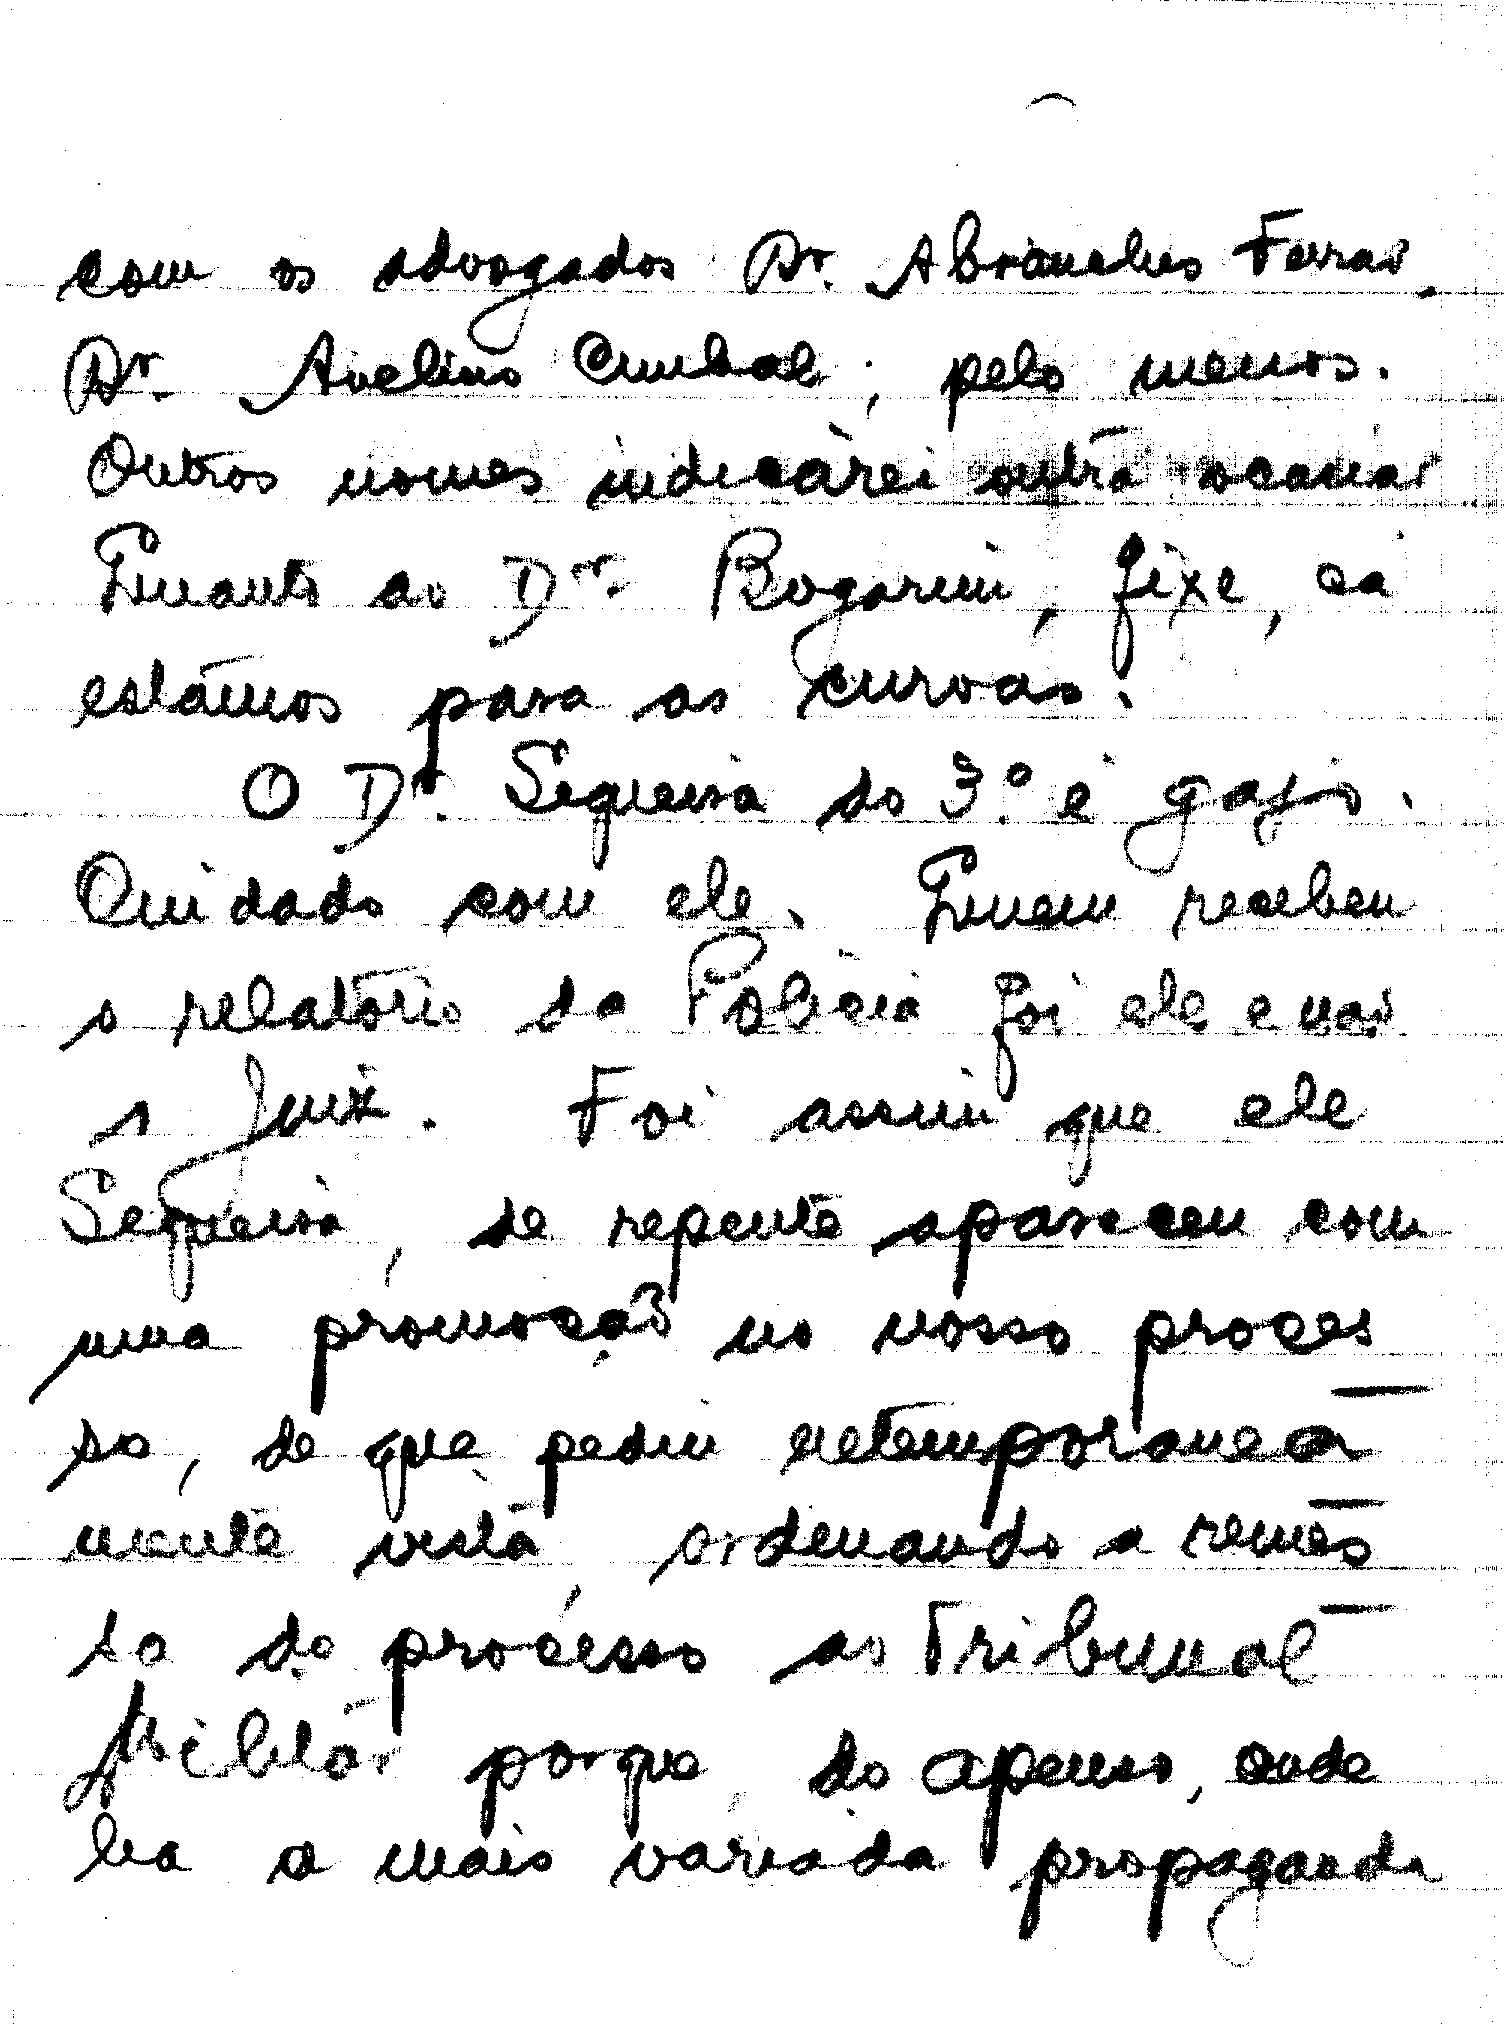 com os advogados Dr. Abranches Ferrão.
Dr. Avelino Cunhal, pelo menos.
Outros nomes indicarei outra ocasião
Quanto ao Dr. Bogarim, fixe, cá
estámos para as curvas.
O Dr. Sequeira do 3.º é gajo.
Cuidado com ele. Quem recebeu
o relatório da Policia foi ele e não
o Juiz. Foi assim que ele
Sequeira, de repente apareceu com
uma promoção no nosso proces
so, de que pediu extemporanea
mente vista, ordenando a remes
sa do processo ao Tribunal
Militar porque, do apenso, onde
ha a mais variada propaganda